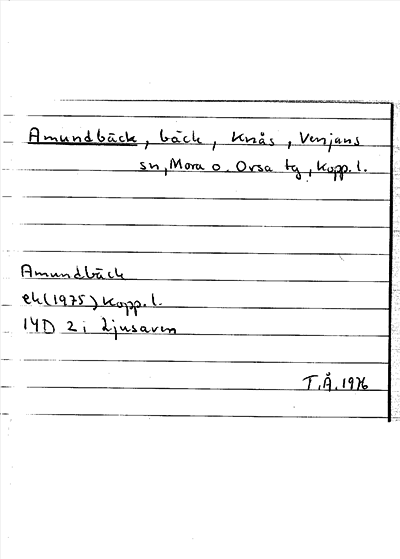 Amundbäck, bäck, Knås, Venjans
sn, Mora o. Orsa tg, Kopp. l.
Amundbäck
ek (1975) Kopp. l.
14D 2i Ljusaren
T.Å. 1976